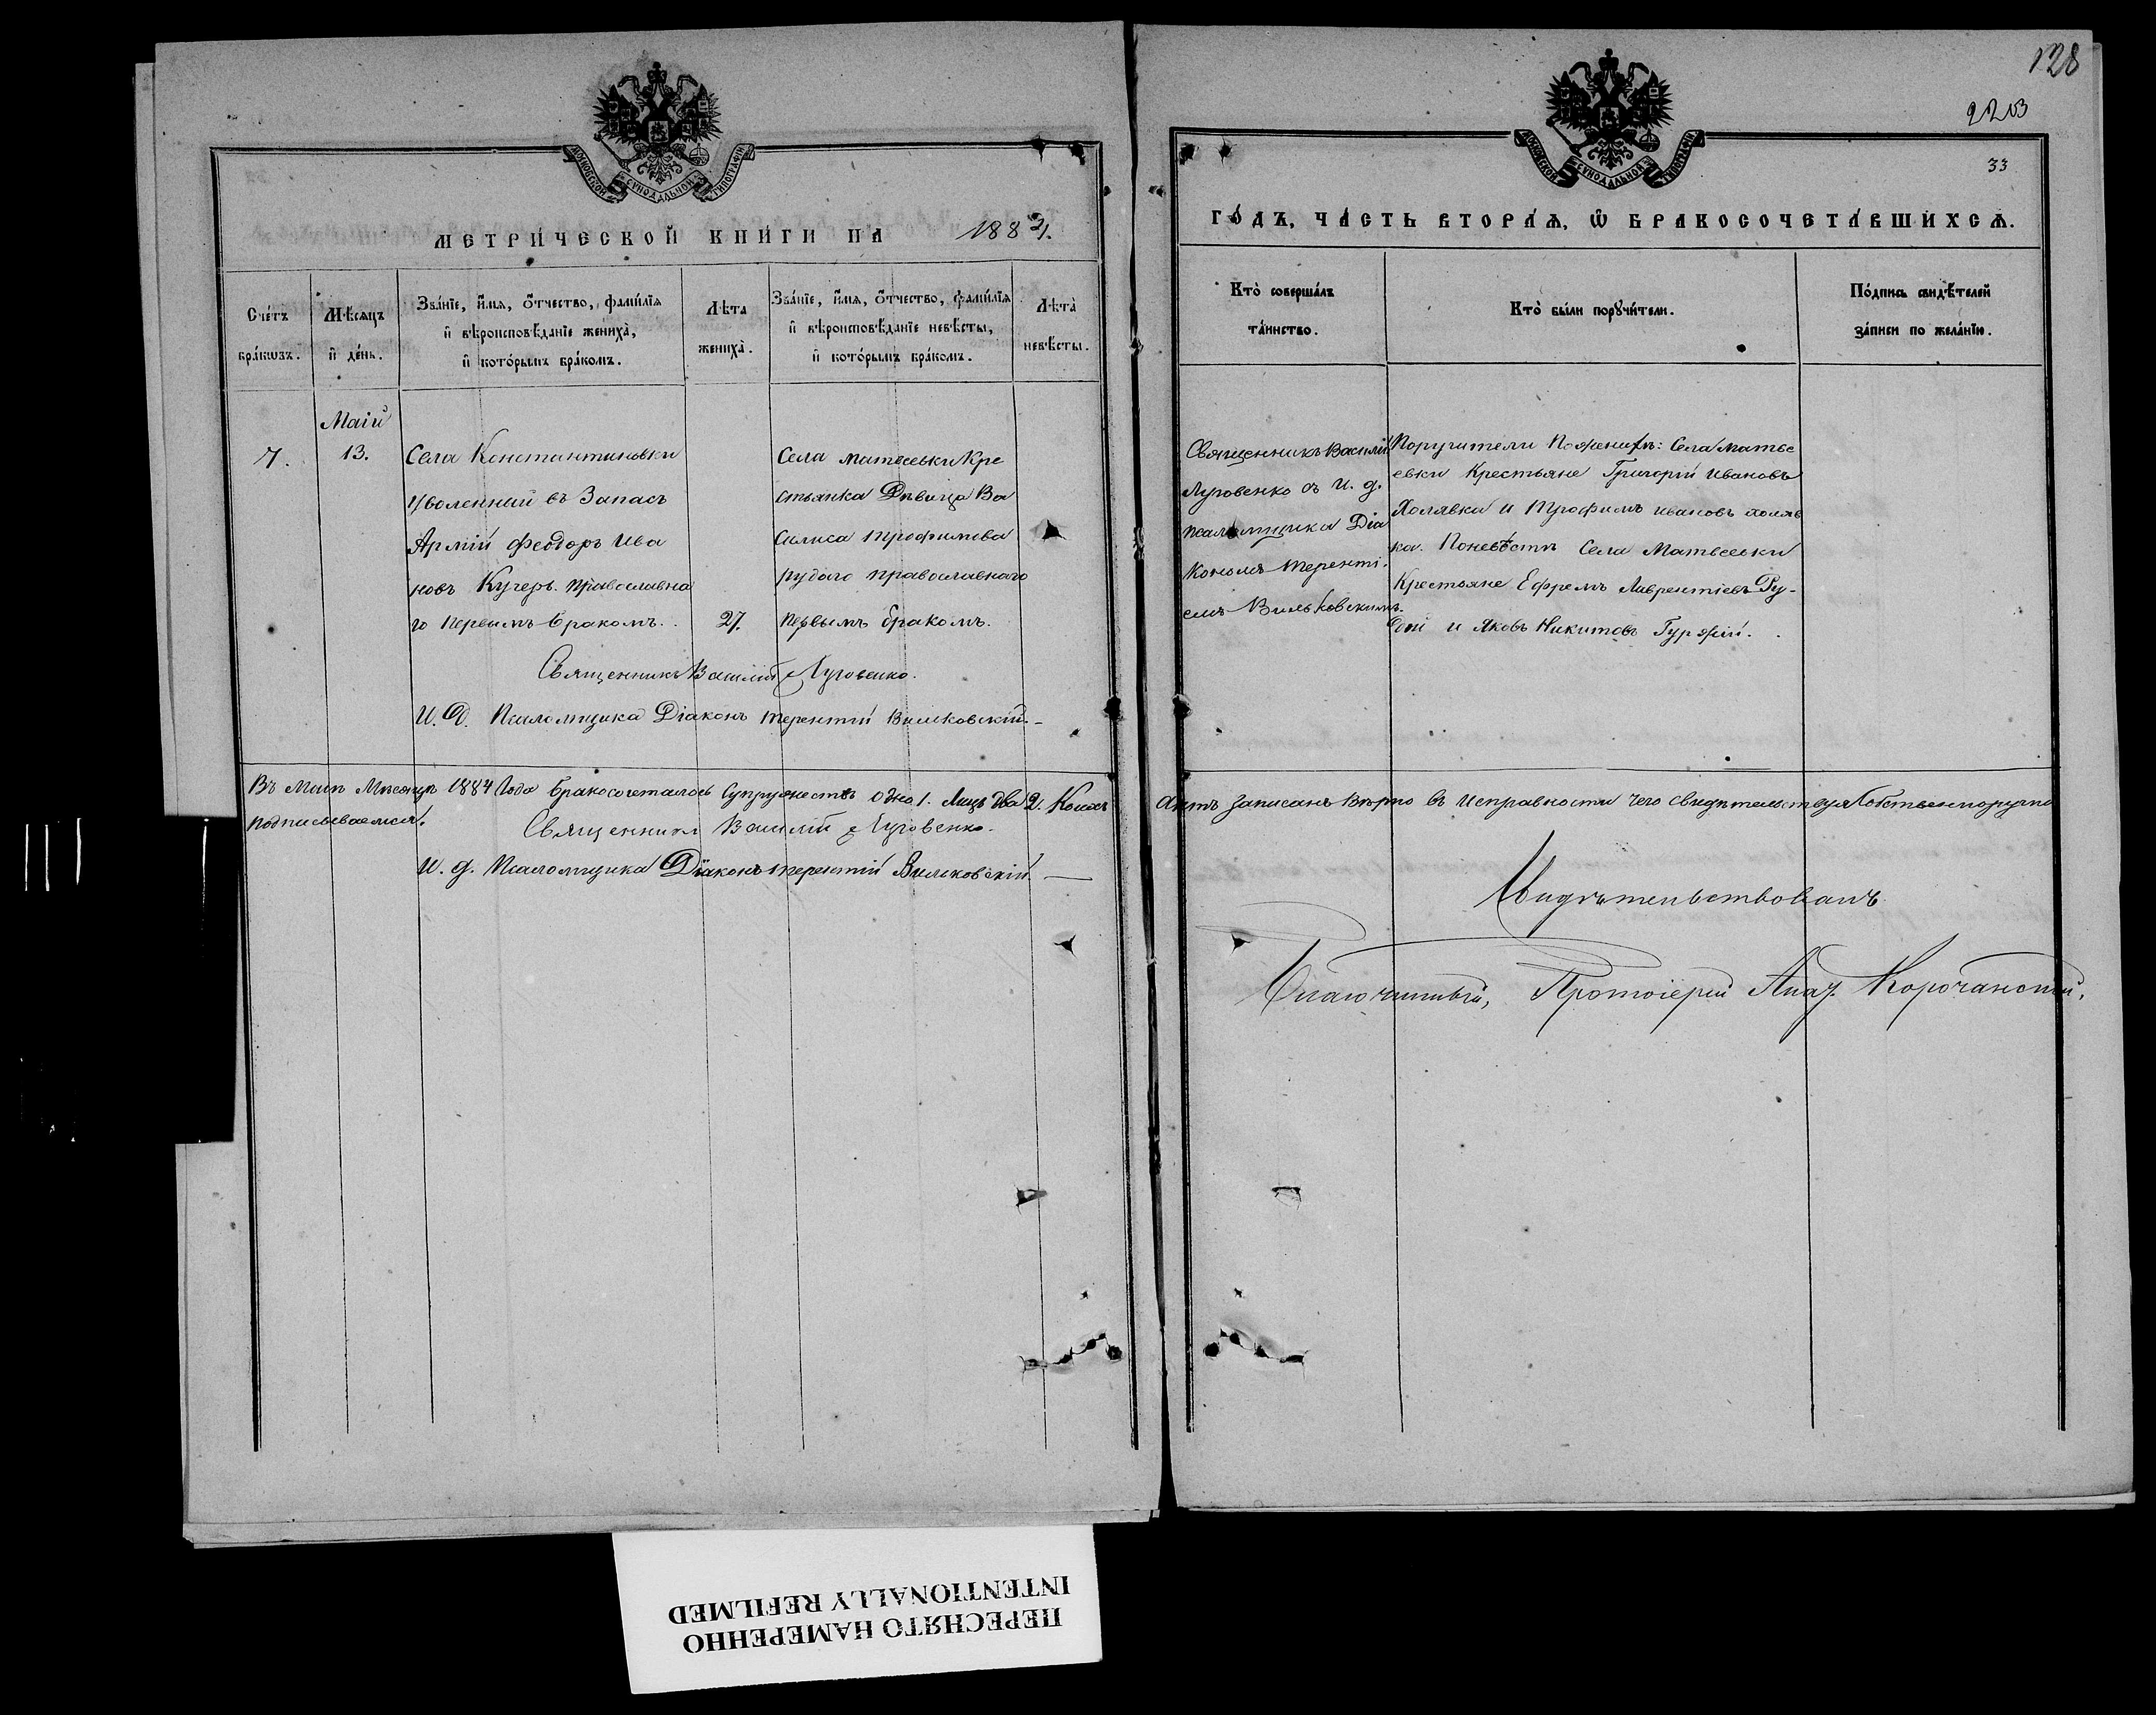 128
2203
33
МОСКОВСКОЙ СѴНОДАЛЬНОЙ ТИПОГРАФІИ
МОСКОВСКОЙ СѴНОДАЛЬНОЙ ТИПОГРАФІИ
МЕТРИЧЕСКОЙ КНИГИ НА 1884.
ГОДЪ, ЧАСТЬ ВТОРАЯ, Ѿ БРАКОСОЧЕТАВШИХСЯ.
Счетъ браковъ.
Мѣсяцъ и день.
Званіе, имя, отчество, фамилія
и вѣроисповѣданіе жениха,
и которымъ бракомъ.
Лѣта жениха.
Званіе, имя, отчество, фамилія
и вѣроисповѣданіе невѣсты,
и которымъ бракомъ.
Лѣта невѣсты.
Кто совершалъ таинство.
Кто были поручители.
Подпись свидѣтелей
записи по желанію.
Маій
7.
13.
Села Константиновки
уволенный въ Запасъ
Армій Феодоръ Ива
новъ Кучеръ. православна
го первымъ бракомъ.
27.
Села Матвеевки Кре
стьянка Дѣвица Ва
силиса Трофимова
рудого православнаго
первымъ бракомъ.
Священникъ Василій
Луговенко съ И. д.
псаломщика Діа
кономъ Теренті
емъ Вильковскимъ.
Поручители Пожениҳѣ: Села Матве
евки Крестьяне Григорій Ивановъ
Холявка и Трофимъ Ивановъ холяв
ка. Поневѣстѣ Села Матвеевки
Крестьяне Ефремъ Лаврентіевъ Ру-
дой и Яковъ Никитовъ Гуржій.
Священникъ Василій Луговенко.
И. Д. Псаломщика Діаконъ Терентій Вильковскій.
Въ Маѣ Месяцѣ 1884 Года бракосочеталось Супружествъ одно 1. Лицъ два 2. Коихъ
Актъ записанъ вѣрно въ исправности чего свидѣтельствуя Собственноручно
подписываемся.
Священникъ Василій Луговенко.
И. д. Псаломщика Діаконъ Терентій Вильковскій.
Свидѣтельствовалъ
Благочинный, Протоіерей Корочанскій.
ПЕРЕСНЯТО НАМЕРЕННО
INTENTIONALLY REFILMED